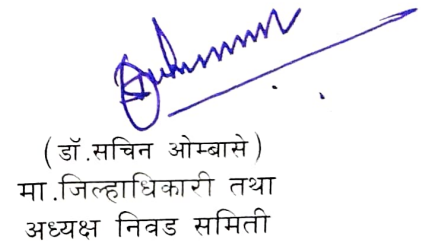 (डॉ.सचिन ओम्बासे)
मा.जिल्हाधिकारी तथा
अध्यक्ष निवड समिती